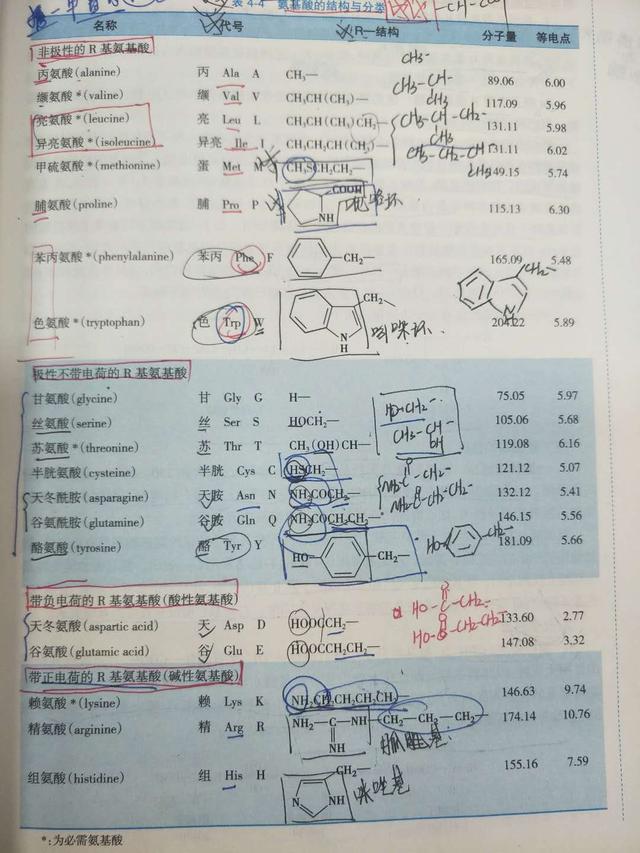 表 4-4 氨基酸的结构与分类
名称 代号 R—结构 分子量 等电点
非极性的 R 基氨基酸
丙氨酸(alanine) 丙 Ala A CH₃— 89.06 6.00
缬氨酸*(valine) 缬 Val V CH₃CH(CH₃)— 117.09 5.96
亮氨酸*(leucine) 亮 Leu L CH₃CH(CH₃)CH₂— 131.11 5.98
异亮氨酸*(isoleucine) 异亮 Ile I CH₃CH₂CH(CH₃)— 131.11 6.02
甲硫氨酸*(methionine) 蛋 Met M CH₃SCH₂CH₂— 149.15 5.74
脯氨酸(proline) 脯 Pro P COOH NH 115.13 6.30
苯丙氨酸*(phenylalanine) 苯丙 Phe F CH₂— 165.09 5.48
色氨酸*(tryptophan) 色 Trp W CH₂— N H 吲哚环 204.22 5.89
极性不带电荷的 R 基氨基酸
甘氨酸(glycine) 甘 Gly G H— 75.05 5.97
丝氨酸(serine) 丝 Ser S HOCH₂— 105.06 5.68
苏氨酸*(threonine) 苏 Thr T CH₃(OH)CH— 119.08 6.16
半胱氨酸(cysteine) 半胱 Cys C HSCH₂— 121.12 5.07
天冬酰胺(asparagine) 天胺 Asn N NH₂COCH₂— 132.12 5.41
谷氨酰胺(glutamine) 谷胺 Gln Q NH₂COCH₂CH₂— 146.15 5.56
酪氨酸(tyrosine) 酪 Tyr Y HO— CH₂— 181.09 5.66
带负电荷的 R 基氨基酸(酸性氨基酸)
天冬氨酸(aspartic acid) 天 Asp D HOOCCH₂— 133.60 2.77
谷氨酸(glutamic acid) 谷 Glu E HOOCCH₂CH₂— 147.08 3.32
带正电荷的 R 基氨基酸(碱性氨基酸)
赖氨酸*(lysine) 赖 Lys K NH₂CH₂CH₂CH₂CH₂— 146.63 9.74
精氨酸(arginine) 精 Arg R NH₂—C—NH—CH₂—CH₂—CH₂— 174.14 10.76
NH 胍基
组氨酸(histidine) 组 His H CH₂— N NH 咪唑基 155.16 7.59
*:为必需氨基酸